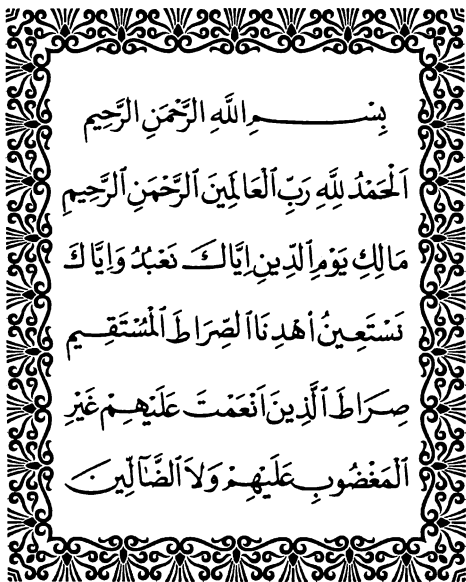 بِسْمِ اللَّهِ الرَّحْمَنِ الرَّحِيمِ
اَلْحَمْدُ لِلَّهِ رَبِّ الْعَالَمِينَ الرَّحْمَنِ الرَّحِيمِ
مَالِكِ يَوْمِ الدِّينِ اِيَّاكَ نَعْبُدُ وَاِيَّاكَ
نَسْتَعِينُ اهْدِنَا الصِّرَاطَ الْمُسْتَقِيمَ
صِرَاطَ الَّذِينَ اَنْعَمْتَ عَلَيْهِمْ غَيْرِ
الْمَغْضُوبِ عَلَيْهِمْ وَلاَ الضَّآلِّينَ